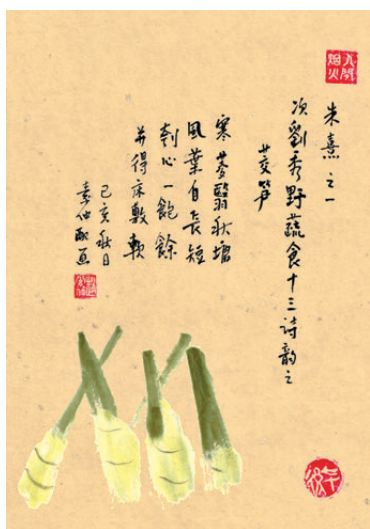 人間烟火
朱熹之一
次劉秀野蔬食十三詩韵之
茭笋
寒茭翳秋塘
風葉自長短
刳心一飽餘
并得床敷軟
己亥秋日
素仲配画